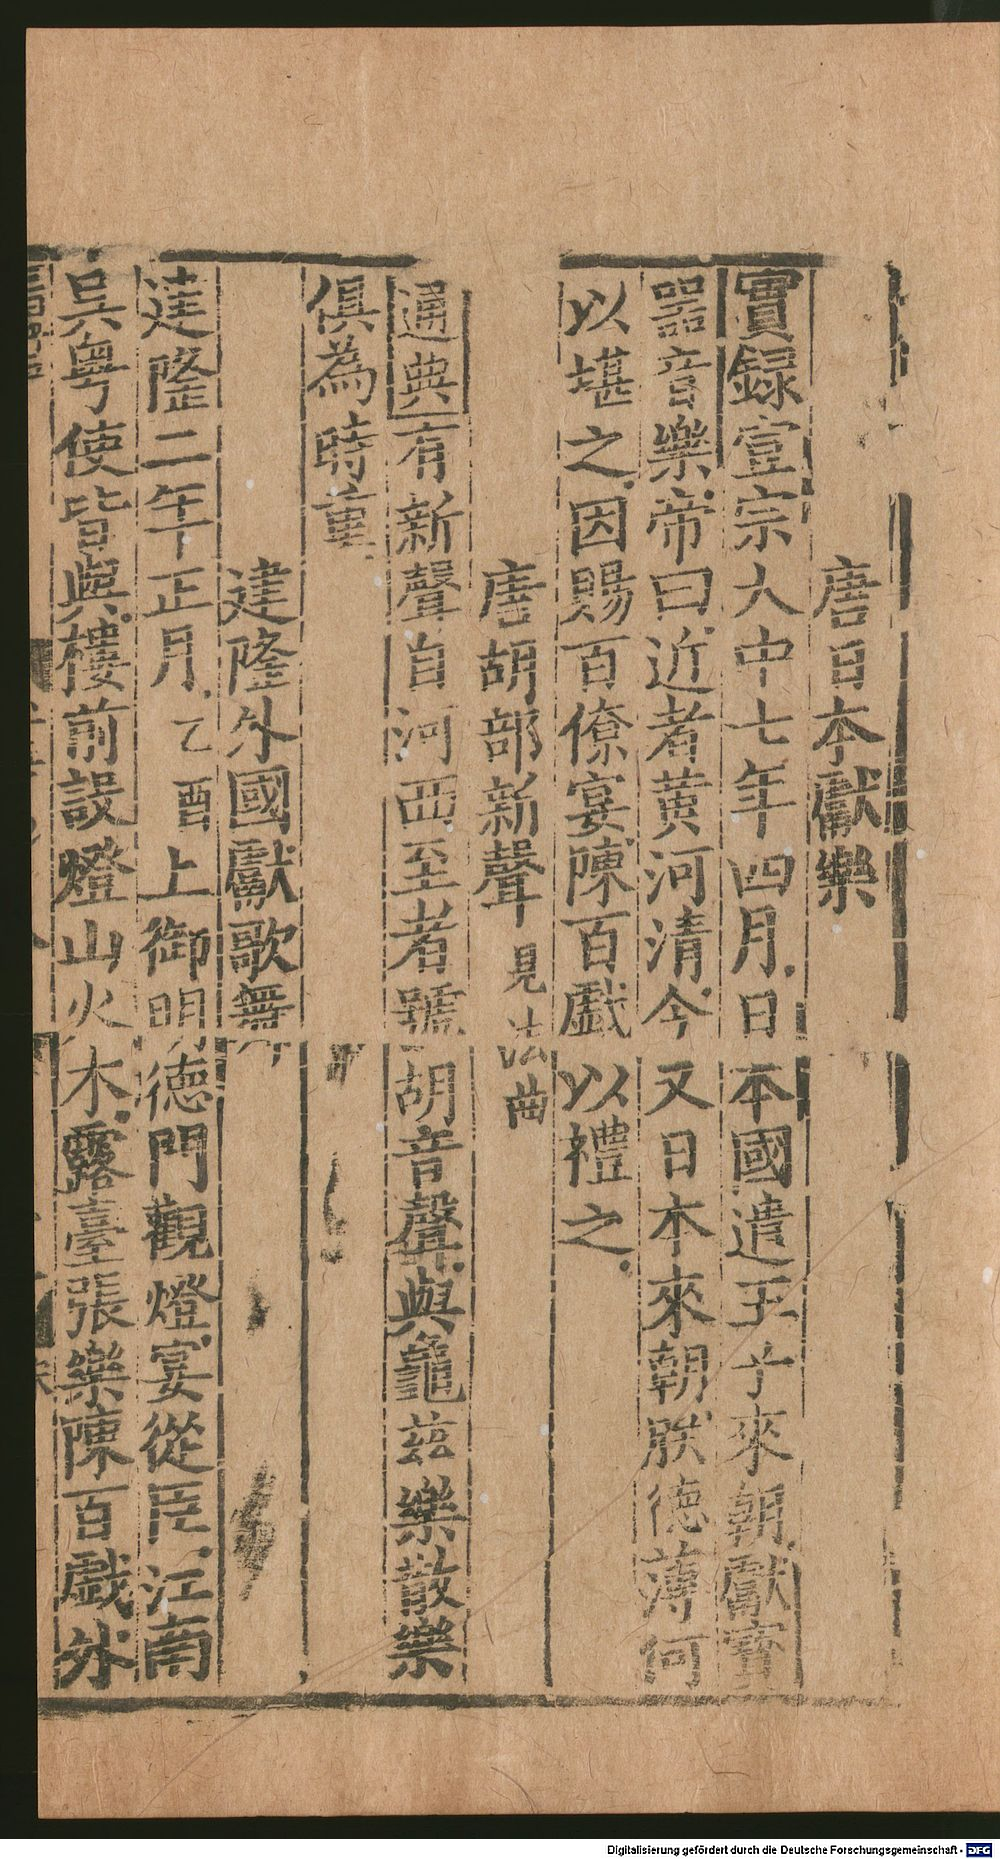 唐日本獻樂
實録宣宗大中七年四月日本國遣王子來朝獻寳
器音樂帝曰近者黄河清今又日本來朝朕德薄何
以堪之因賜百僚宴陳百戯以禮之
唐胡部新聲見法曲
通典有新聲自河西至者號胡音聲與龜茲樂散樂
俱為時重
建隆外國獻歌舞
建隆二年正月乙酉上御明德門觀燈宴從臣江南
吳粤使皆與樓前設燈山火木露臺張樂陳百戯外
Digitalisierung gefördert durch die Deutsche Forschungsgemeinschaft - DFG